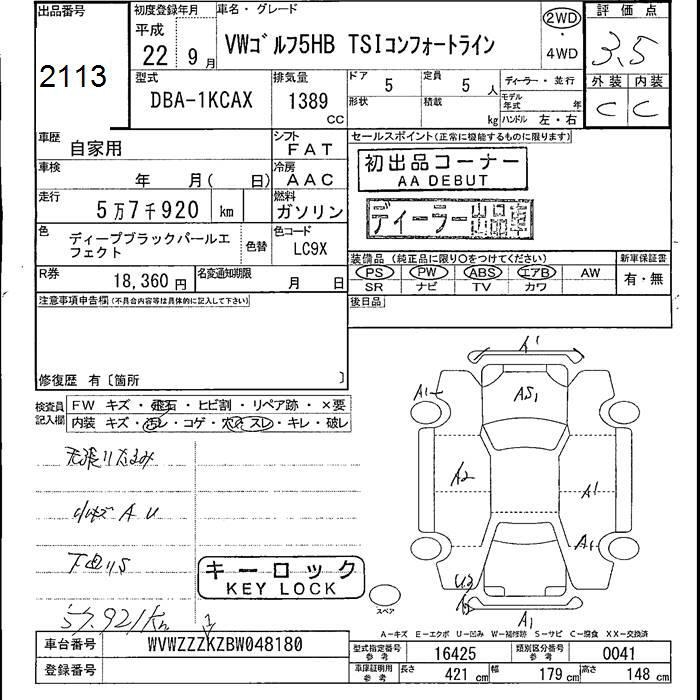 出品番号
2113
初度登録年月
平成
22 9 月
車名・グレード
VWゴルフ5HB TSIコンフォートライン
2WD
・
4WD
評価点
3.5
外装 内装
C C
型式
DBA-1KCAX
排気量
1389
CC
ドア 5
定員 5 人
形状
積載 kg
ディーラー・並行
モデル年式 年
ハンドル 左・右
車歴 自家用
シフト FAT
車検 年 月( 日)
冷房 AAC
走行 5万7千920 km
燃料 ガソリン
色 ディープブラックパールエフェクト
色替
色コード LC9X
R券 18,360 円
名変通知期限 月 日
セールスポイント(正常に機能するものに限ります)
初出品コーナー
AA DEBUT
ディーラー出品車
装備品 (純正品に限り○をつけてください)
新車保証書
PS PW ABS エアB AW
有・無
SR ナビ TV カワ
注意事項申告欄(不具合内容等は具体的に記入して下さい)
後日品
修復歴 有〔箇所 〕
検査員記入欄
FW キズ・飛石・ヒビ割・リペア跡・×要
内装 キズ・汚レ・コゲ・穴・スレ・キレ・破レ
天張りたるみ
小キズ A U
下回りS
57,921km
キーロック
KEY LOCK
A1
A1
AS1
A2
A1
A1
U2
A1
スペア
A-キズ E-エクボ U-凹み W-補修跡 S-サビ C-腐食 XX-交換済
車台番号 WVWZZZ1KZBW048180
登録番号
型式指定番号 参考 16425
類別区分番号 参考 0041
車庫証明用 参考 長さ 421 cm 幅 179 cm 高さ 148 cm